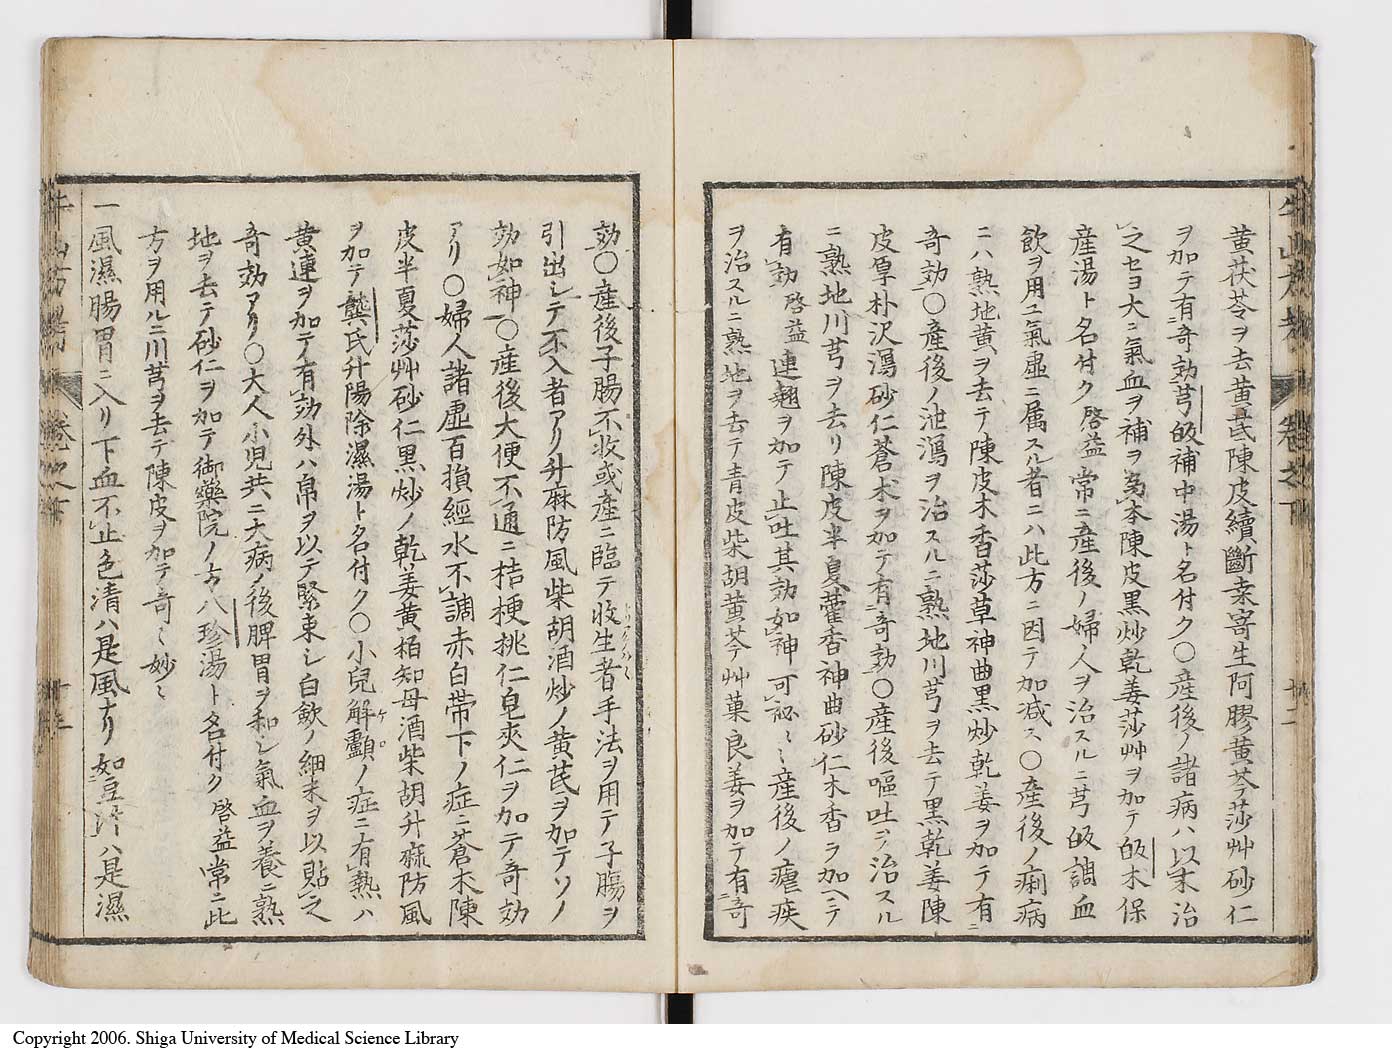 黄茯苓ヲ去黄芪陳皮續斷桒寄生阿膠黄芩莎艸砂仁
ヲ加テ有奇効芎皈補中湯ト名付ク〇産後ノ諸病ハ以末治
之セヨ大ニ氣血ヲ補ヲ為本陳皮黒炒乾姜莎艸ヲ加テ皈木保
産湯ト名付ク 啓益 常ニ産後ノ婦人ヲ治スルニ芎皈調血
飲ヲ用ユ氣虚ニ属スル者ニハ此方ニ因テ加减ス〇産後ノ痢病
ニハ熟地黄ヲ去テ陳皮木香莎草神曲黒炒乾姜ヲ加テ有
奇効〇産後ノ泄瀉ヲ治スルニ熟地川芎ヲ去テ黒乾姜陳
皮厚朴沢瀉砂仁蒼朮ヲ加テ有奇効〇産後嘔吐ヲ治スル
ニ熟地川芎ヲ去リ陳皮半夏藿香神曲砂仁木香ヲ加ヘテ
有効 啓益 連翹ヲ加テ止吐其効如神可秘〻産後ノ瘧疾
ヲ治スルニ熟地ヲ去テ青皮柴胡黄芩艸菓良姜ヲ加テ有奇
効〇産後子腸不收或産ニ臨テ收生者手法ヲ用テ子膓ヲ
引出シテ不入者アリ升麻防風柴胡酒炒ノ黄芪ヲ加テソノ
効如神〇産後大便不通ニ桔梗桃仁皂夾仁ヲ加テ奇効
アリ〇婦人諸虚百損經水不調赤白帯下ノ症ニ蒼朮陳
皮半夏莎艸砂仁黒炒ノ乾姜黄柏知母酒柴胡升麻防風
ヲ加テ龔氏升陽除濕湯ト名付ク〇小兒解顱ノ症ニ有熱ハ
黄連ヲ加テ有効外ハ帛ヲ以テ緊束シ白歛ノ細末ヲ以貼之
奇効アリ〇大人小児共ニ大病ノ後脾胃ヲ和シ氣血ヲ養ニ熟
地ヲ去テ砂仁ヲ加テ御藥院ノ方八珍湯ト名付ク 啓益常ニ此
方ヲ用ルニ川芎ヲ去テ陳皮ヲ加テ奇〻妙〻
一風濕腸胃ニ入リ下血不止色清ハ是風ナリ如豆汁ハ是濕
Copyright 2006. Shiga University of Medical Science Library